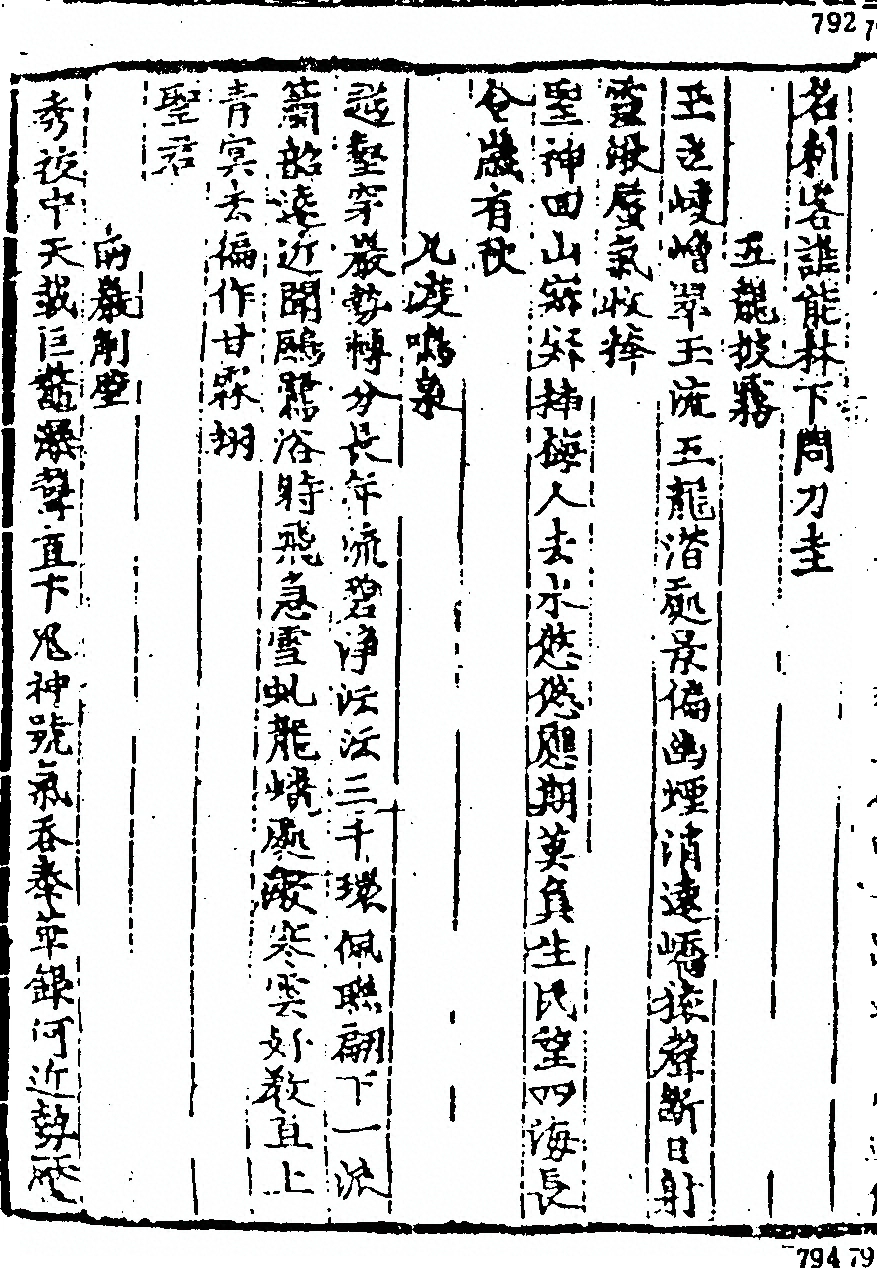 792
名利客誰能林下問刀圭
五龍披霧
玉立崚嶒翠玉流五龍潛處景偏幽煙消遠嶠猿聲斷日射
靈湫蜃氣收捧
聖神回山寂寂 人去水悠悠應期莫負生民望四海長
令歲有秋
九漈鳴泉
越壑穿巖勢轉分長年流碧淨沄沄三千環佩聯翩下一派
簫韶遠近聞鷗鷺浴時飛急雪虬龍蟠處暖寒雲好教直上
青冥去徧作甘霖翊
聖君
兩巖削壁
秀拔中天載巨鼇瀑聲直下鬼神號氣吞奉華銀河近勢壓
794